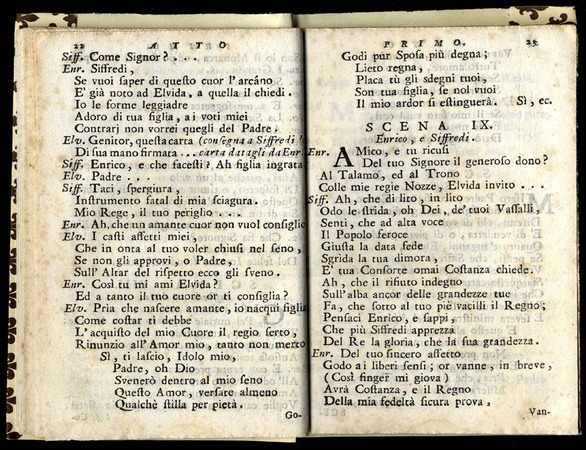 22 ATTO
Siff. Come Signor? . . .
Enr. Siffredi,
Se vuoi saper di questo cuor l'arcáno
E' già noto ad Elvida, a quella il chiedi.
Io le forme leggiadre
Adoro di tua figlia, a i voti miei
Contrarj non vorrei quegli del Padre.
Elv. Genitor, questa carta (consegna a Siffredi
Di sua mano firmata ... carta datagli da Enr.
Siff. Enrico, e che facesti? Ah figlia ingrata
Elv. Padre . . .
Siff. Taci, spergiura,
Instrumento fatal di mia sciagura.
Mio Rege, il tuo periglio . . .
Enr. Ah, che un amante cuor non vuol consiglio
Elv. I casti affetti miei,
Che in onta al tuo voler chiusi nel seno,
Se non gli approvi, o Padre,
Sull' Altar del rispetto ecco gli sveno.
Enr. Così tu mi ami Elvida?
Ed a tanto il tuo cuore or ti consiglia?
Elv. Pria che nascere amante, io nacqui figlia
Come costar ti debbe
L'acquisto del mio Cuore il regio serto,
Rinunzio all'Amor mio, tanto non merto
Sì, ti lascio, Idolo mio,
Padre, oh Dio
Svenerò dentro al mio seno
Questo Amor, versare almeno
Qualchè stilla per pietà.
Go-
PRIMO. 23
Godi pur Sposa più degna;
Lieto regna,
Placa tù gli sdegni tuoi,
Son tua figlia, se nol vuoi
Il mio ardor si estinguerà. Sì, ec.
SCENA IX.
Enrico, e Siffredi.
Enr. AMico, e tu ricusi
Del tuo Signore il generoso dono?
Al Talamo, ed al Trono
Colle mie regie Nozze, Elvida invito . . .
Siff. Ah, che di lito, in lito
Odo le strida, oh Dei, de' tuoi Vassalli,
Senti, che ad alta voce
Il Popolo feroce
Giusta la data fede
Sgrida la tua dimora,
E' tua Consorte omai Costanza chiede.
Ah, che il rifiuto indegno
Sull'alba ancor delle grandezze tue
Fa, che sotto al tuo piè vacilli il Regno;
Pensaci Enrico, e sappi,
Che più Siffredi apprezza
Del Re la gloria, che la sua grandezza.
Enr. Del tuo sincero affetto
Godo ai liberi sensi; or vanne, in breve,
(Così finger mi giova)
Avrà Costanza, e il Regno
Della mia fedeltà sicura prova,
Van-